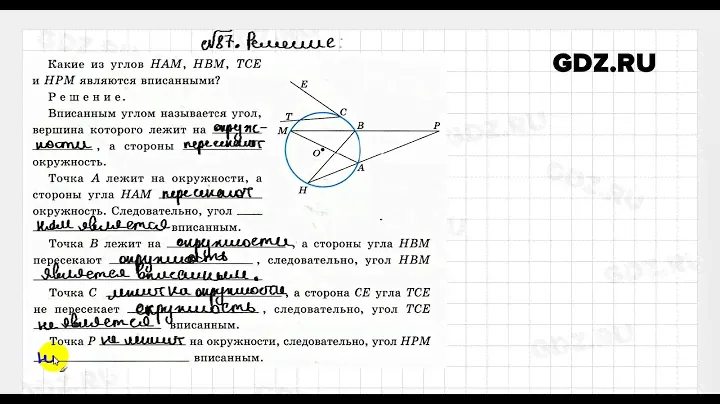 №87. Решение:
GDZ.RU
Какие из углов HAM, HBM, TCE
и HPM являются вписанными?
Решение.
Вписанным углом называется угол,
вершина которого лежит на окруж-
ности, а стороны пересекают
окружность.
Точка A лежит на окружности, а
стороны угла HAM пересекают
окружность. Следовательно, угол
HAM является вписанным.
Точка B лежит на окружности, а стороны угла HBM
пересекают окружность, следовательно, угол HBM
является вписанным.
Точка C лежит на окружности, а сторона CE угла TCE
не пересекает окружность, следовательно, угол TCE
не является вписанным.
Точка P не лежит на окружности, следовательно, угол HPM
не вписанным.
E
C
T
M
B
P
O
A
H